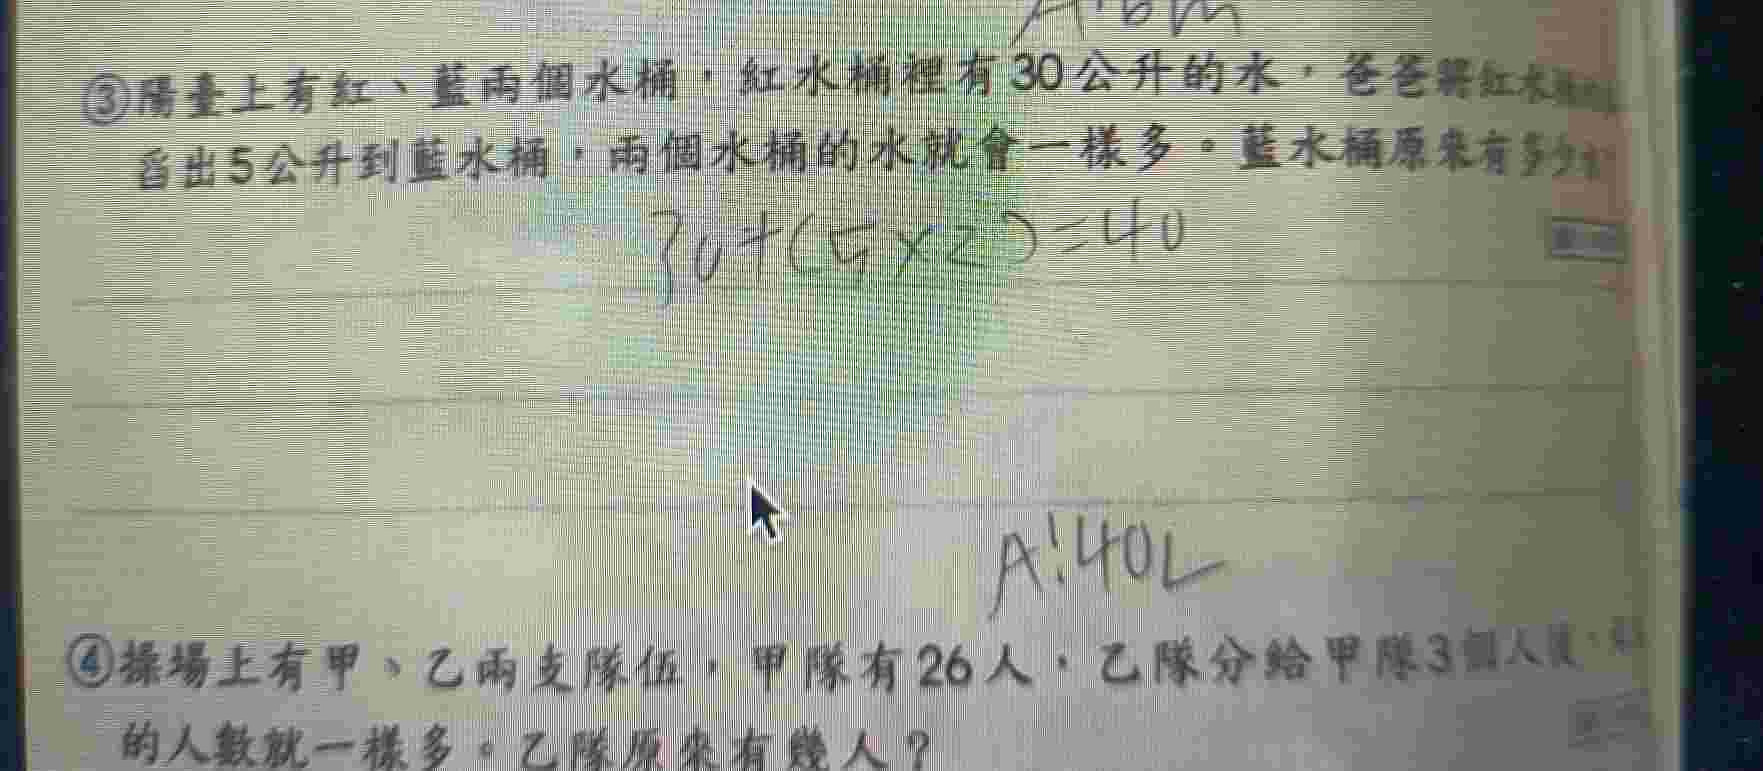 A:6m
③陽臺上有紅、藍兩個水桶,紅水桶裡有30公升的水,爸爸將紅水
舀出5公升到藍水桶,兩個水桶的水就會一樣多。藍水桶原來有多少
30+(5×2)=40
A:40L
④操場上有甲、乙兩支隊伍,甲隊有26人,乙隊分給甲隊3個人後,
的人數就一樣多。乙隊原來有幾人?